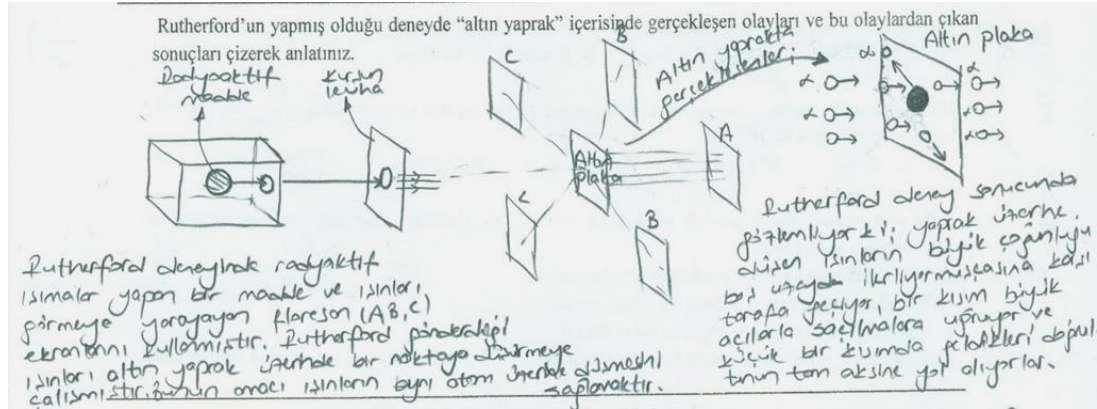 Rutherford'un yapmış olduğu deneyde "altın yaprak" içerisinde gerçekleşen olayları ve bu olaylardan çıkan
sonuçları çizerek anlatınız.
Radyoaktif
madde
Kurşun
levha
C
B
Altın yaprakta
gerçekleşenler
Altın plaka
α
α
α
α
α
α
A
Altın
plaka
C
B
Rutherford deneyinde radyaktif
ısımalar yapan bir madde ve ışınları
görmeye yarayayan floresan (A,B,C)
ekranlarını kullanmıştır. Rutherford gönderdiği
ışınları altın yaprak üzerinde bir noktaya düşürmeye
çalışmıştır. Bunun amacı ışınların aynı atom üzerine düşmesini
sağlamaktır.
Rutherford deney sonucunda
gözlemliyor ki; yaprak üzerine
düşen ışınların büyük çoğunluğu
boş uzayda ilerliyormuşçasına karşı
tarafa geçiyor, bir kısım büyük
açılarla saçılmalara uğruyor ve
küçük bir kısımda geldikleri doğrul-
tunun tam aksine yol alıyorlar.